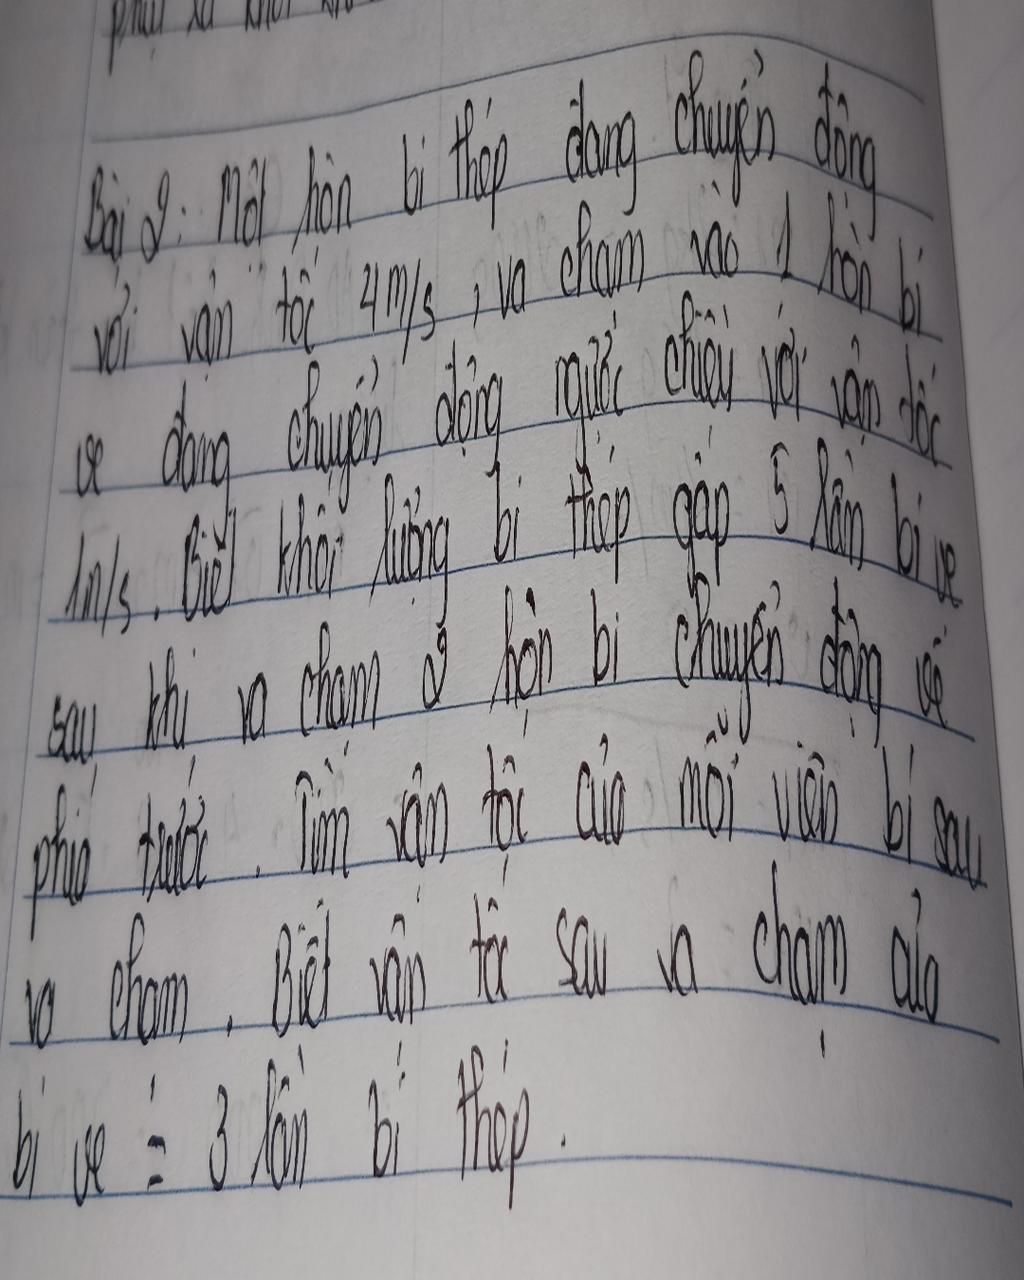 Bài 2: Một hòn bi thép đang chuyển động
với vận tốc 4m/s, va chạm vào 1 hòn bi
ve đang chuyển động ngược chiều với vận tốc
1m/s. Biết khối lượng bi thép gấp 5 lần bi ve
sau khi va chạm 2 hòn bi chuyển động về
phía trước. Tìm vận tốc của mỗi viên bi sau
va chạm. Biết vận tốc sau va chạm của
bi ve = 3 lần bi thép.